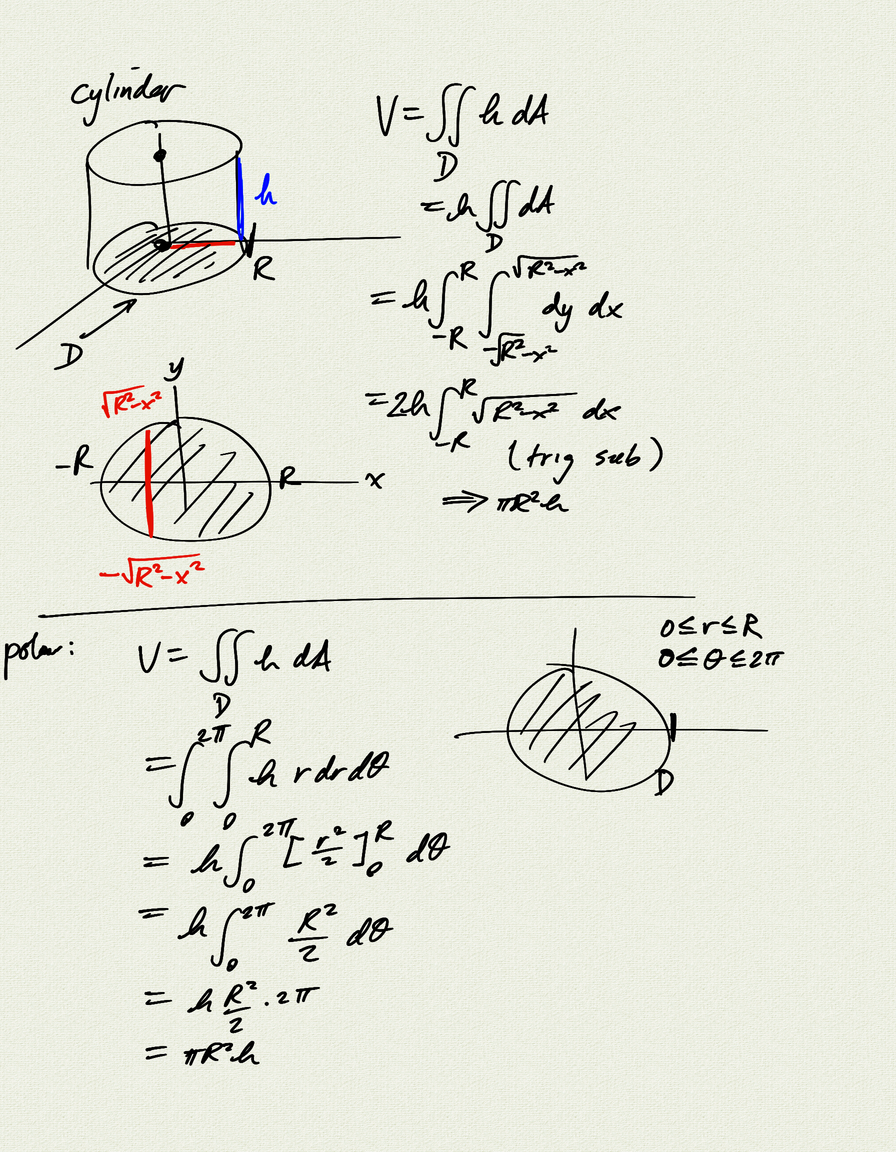 cylinder
h
R
D
V = ∬_D h dA
= h ∬_D dA
= h ∫_{-R}^{R} ∫_{-√(R²-x²)}^{√(R²-x²)} dy dx
= 2h ∫_{-R}^{R} √(R²-x²) dx
(trig sub)
⟹ πR²h
y
√(R²-x²)
-R
R
x
-√(R²-x²)
polar:
V = ∬_D h dA
= ∫_0^{2π} ∫_0^R h r dr dθ
= h ∫_0^{2π} [r²/2]_0^R dθ
= h ∫_0^{2π} R²/2 dθ
= h R²/2 · 2π
= πR²h
0 ≤ r ≤ R
0 ≤ θ ≤ 2π
D